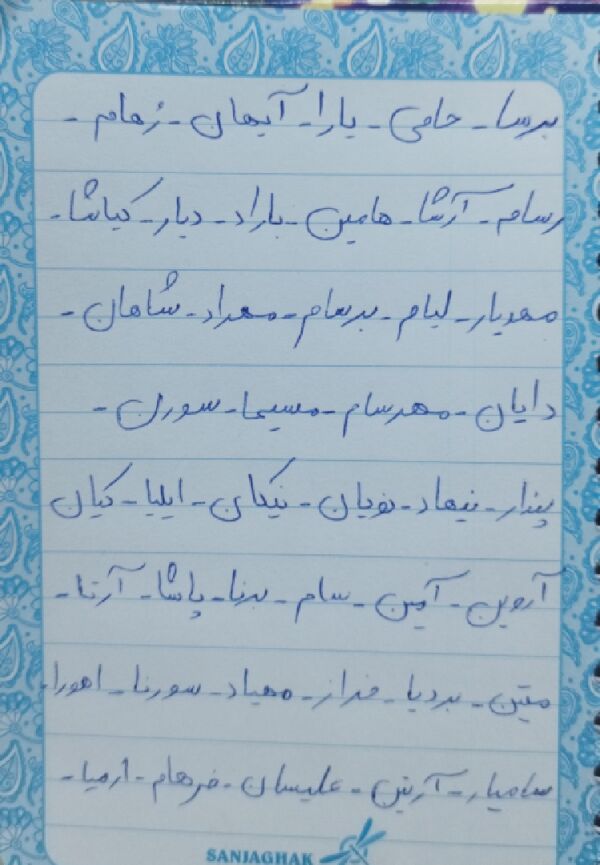 برسا - حامی - یارا - آبهان - رُهام -
رسام - آرشا - هامین - باراد - دیار - کیاشا -
مهدیار - لیام - برسام - مهراد - شاهان -
دایان - مهرسام - مسیحا - سورن -
پندار - نیهاد - نویان - نیکان - ایلیا - کیان
آروین - آمین - سام - برنا - پاشا - آرتا -
متین - بردیا - فراز - مهیاد - سورنا - اهورا -
سامیار - آرتین - علیسان - فرهام - ارمیا -
SANJAGHAK